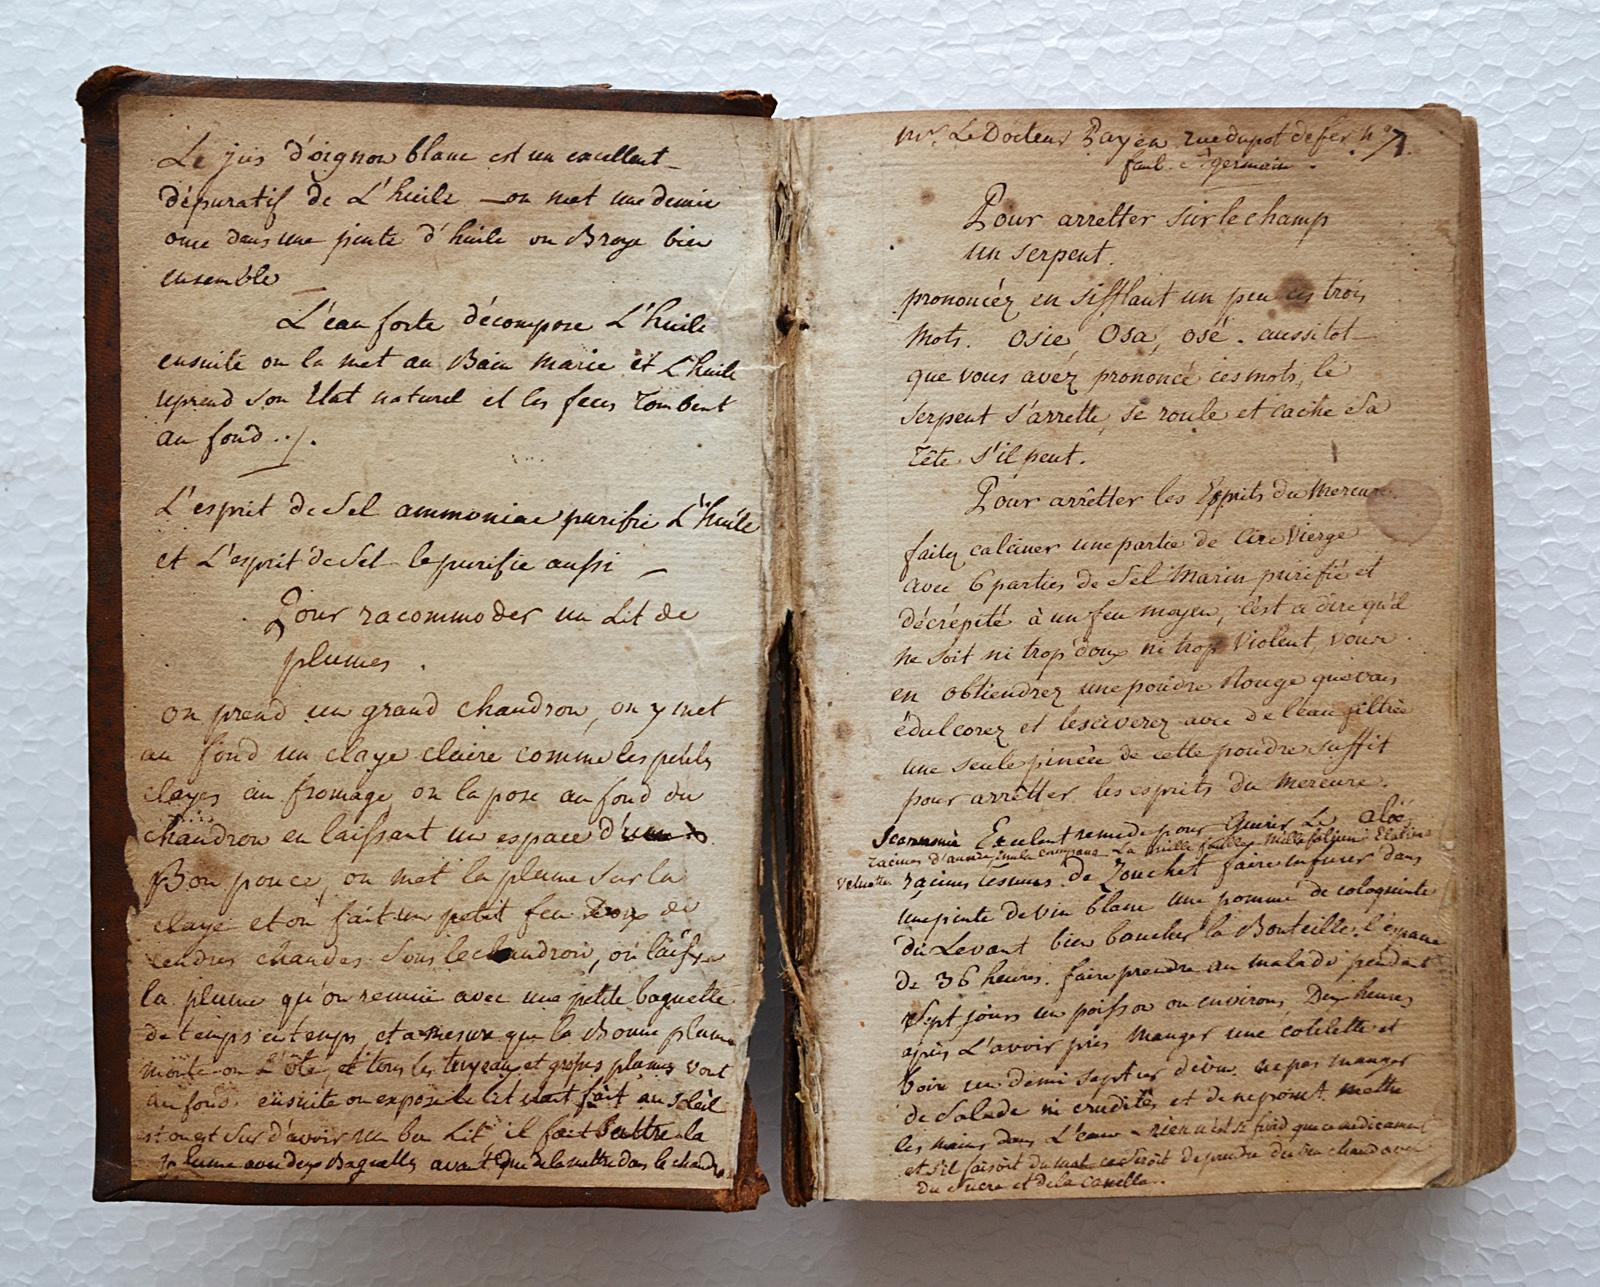 Le jus d'oignon blanc est un excellent
dépuratif de L'huile – on met une demie
once dans une pinte d'huile on Broye bien
ensemble
L'eau forte décompose L'huile
ensuite on la met au Bain marie et L'huile
reprend son Etat naturel et les feces Tombent
au fond ./.
L'esprit de Sel ammoniac purifie L'huile
et L'esprit de Sel le purifie aussi –
Pour racommoder un Lit de
plumes.
on prend un grand chaudron, on y met
au fond un claye claire comme les petits
clayes au fromage on la pose au fond du
chaudron en laissant un espace d'un
Bon pouce, on met la plume sur la
claye et on fait un petit feu Doux de
cendres chaudes sous le chaudron, on laisse
la plume qu'on remue avec une petite baguette
de temps en temps, et a mesure que la Bonne plume
monte on L'ôte, et tous les tuyeaux et grosses plumes vont
au fond. ensuite on expose le lit tout fait au soleil
et on est Sur d'avoir un bon Lit, il faut Battre la
plume avec deux Baguettes avant que de la mettre dans le chaudron
Mr. Le Docteur Payen rue du pot de fer no 7.
faub. St germain.
Pour arretter sur le champ
un serpent.
prononcéz en sifflant un peu ces trois
mots. osie Osa, osé. aussitot
que vous avéz prononcé ces mots, le
serpent s'arrette, se roule et cache sa
Tête s'il peut.
Pour arrêtter les Esprits du Mercure
faites calciner une partie de Cire Vierge
avec 6 parties de Sel Marin purifié et
décrépité à un feu moyen, c'est a dire qu'il
ne soit ni trop doux ni trop Violent, vous
en obtiendrez une poudre Rouge que vous
édulcorez et lesciverez avec de l'eau filtrée
une seule pincée de cette poudre suffit
pour arrêtter les esprits du Mercure.
Scammonée Exelent remede pour Guerir Le
racines d'aunée inula campana La mille feuille millefolium
racines de Souchet faire infuser dans
une pinte de vin blanc une pomme de coloquinte
du Levant bien boucher la Bouteille. l'espace
de 36 heures. faire prendre au malade pendant
Sept jours un poisson ou environ, Deux heures
après L'avoir pris manger une cotelette et
boire un demi septier de vin. ne pas manger
de Salade ni crudités et de ne point mettre
les mains dans L'eau – rien n'est si froid que ce médicament
et s'il faisoit du mal ce seroit de prendre du vin chaud avec
du sucre et de la canelle.